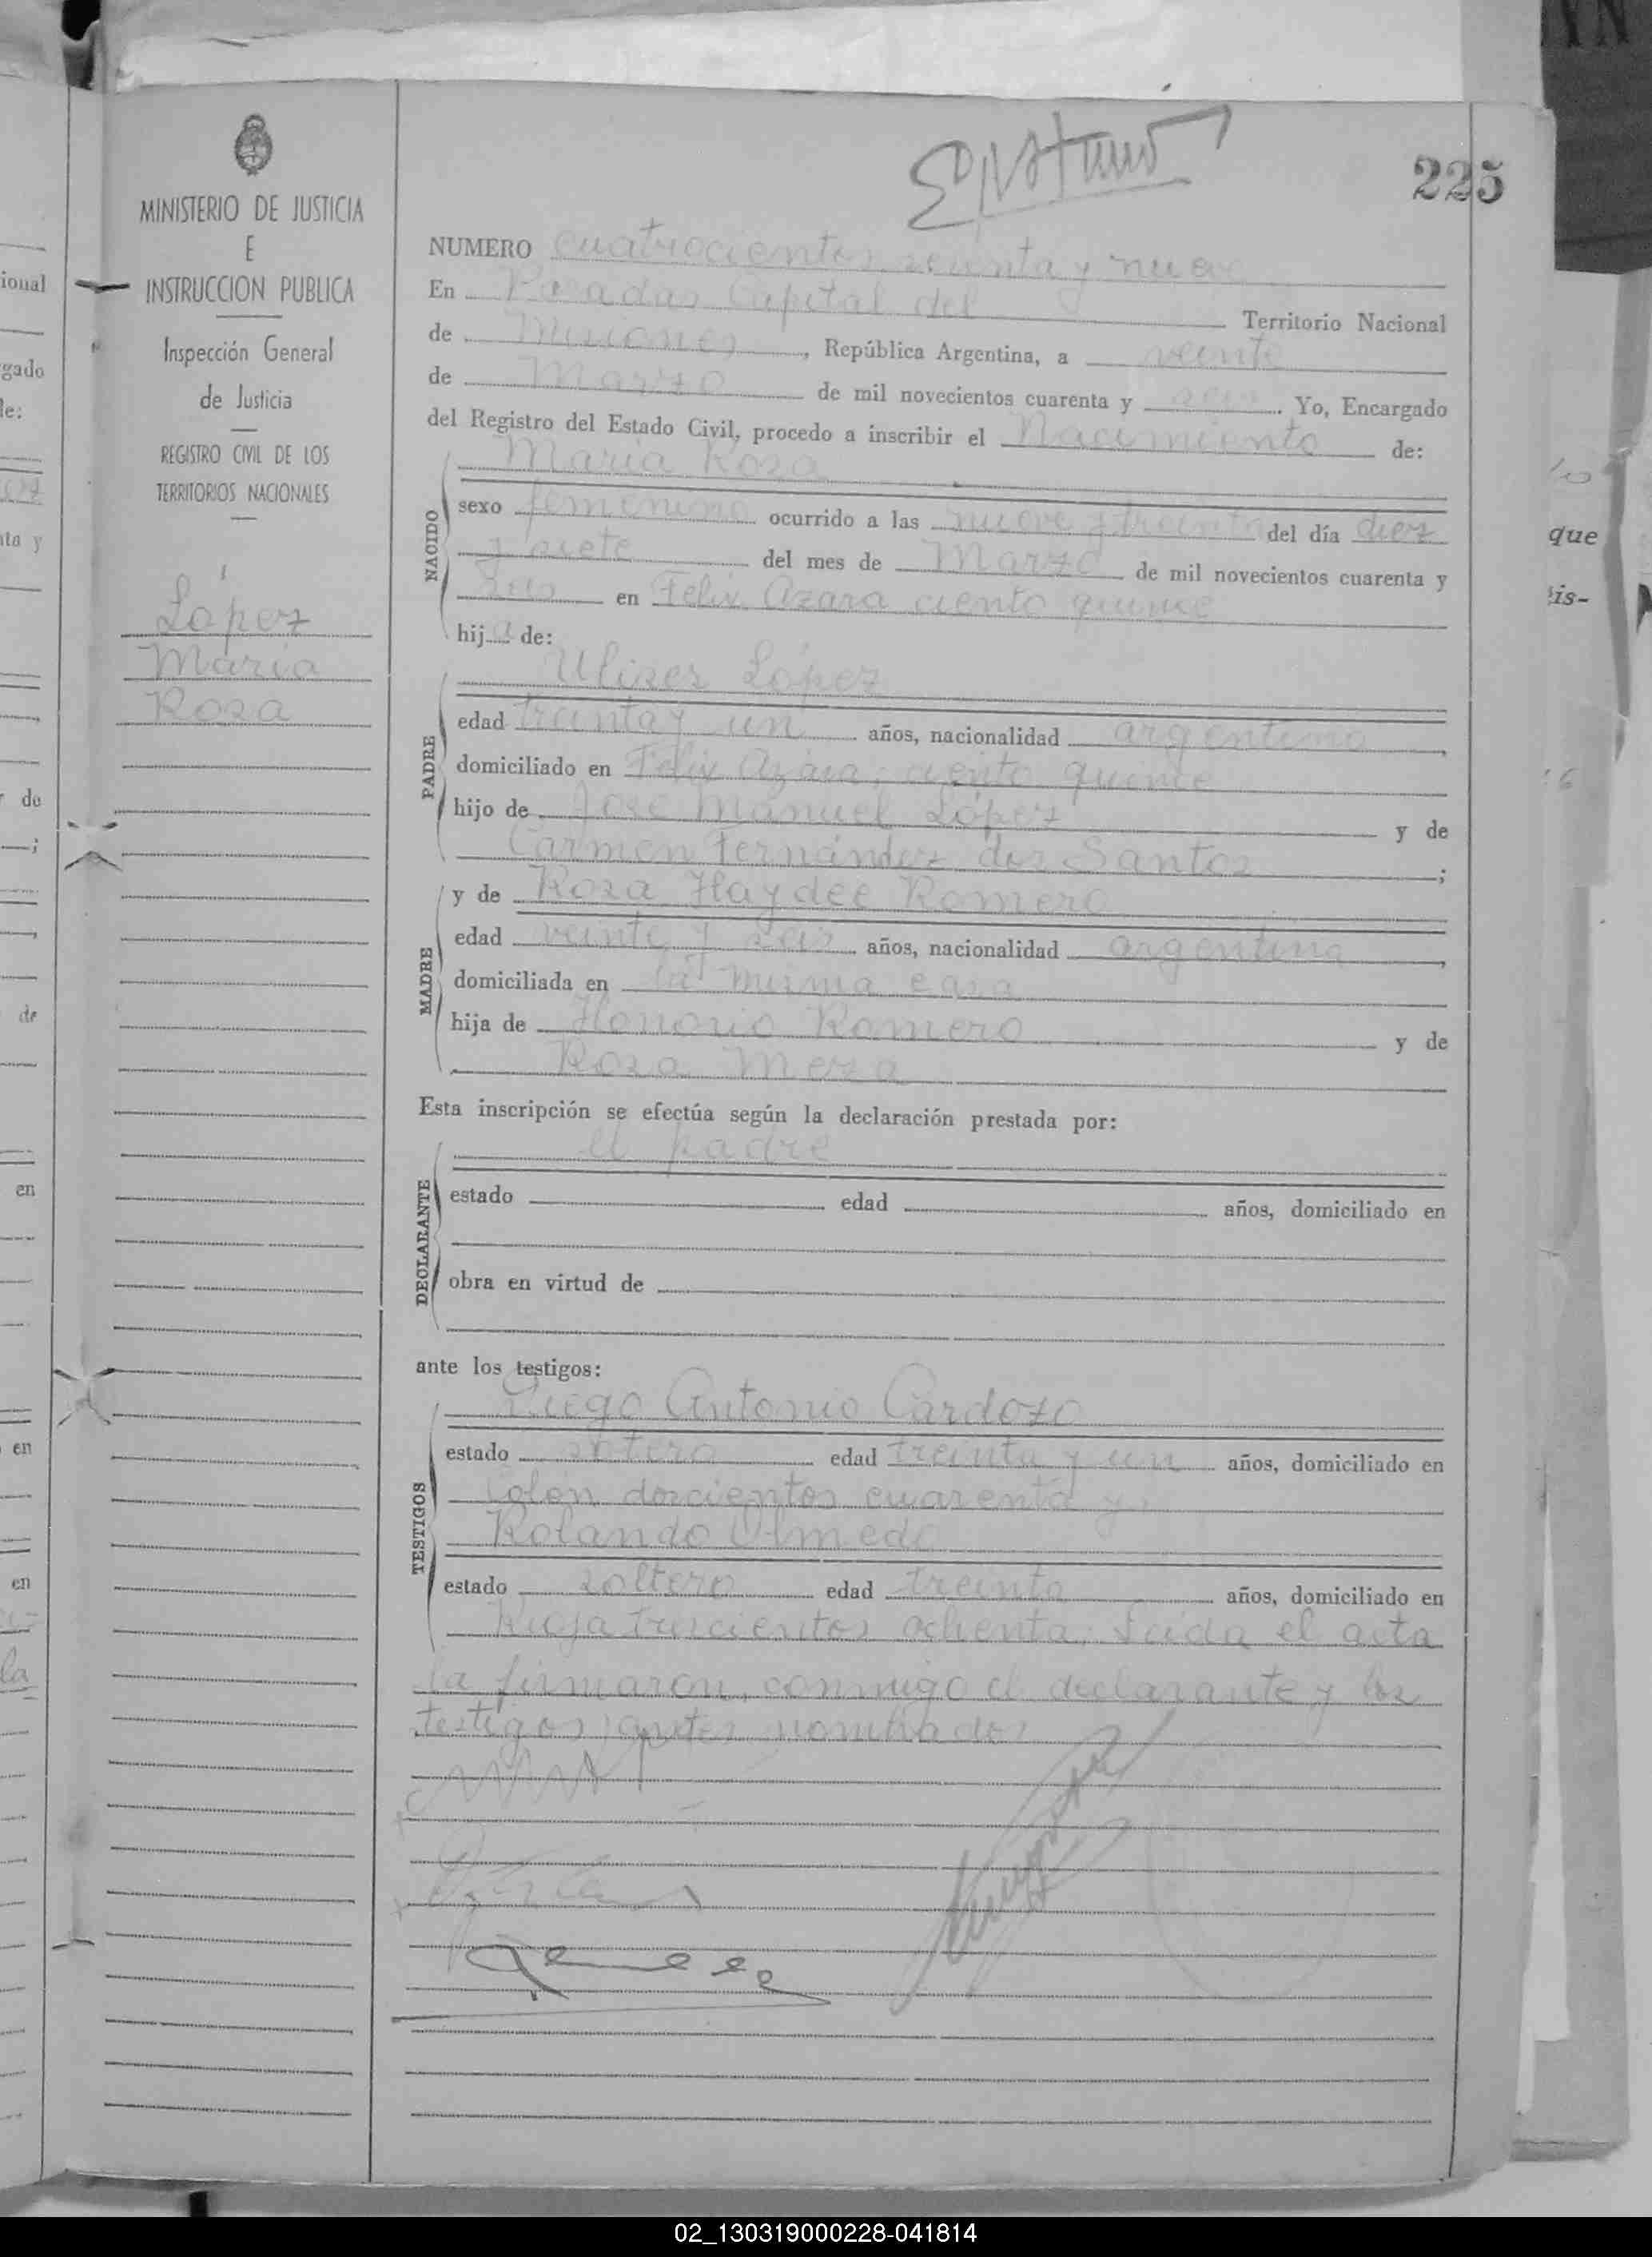 225
MINISTERIO DE JUSTICIA
E
INSTRUCCION PUBLICA
Inspección General
de Justicia
REGISTRO CIVIL DE LOS
TERRITORIOS NACIONALES
López
Maria
Rosa
NUMERO cuatrocientos y nueve
En Posadas Capital del Territorio Nacional
de Misiones, República Argentina, a veinte
de Marzo de mil novecientos cuarenta y seis. Yo, Encargado
del Registro del Estado Civil, procedo a inscribir el Nacimiento de:
NACIDO
Maria Rosa
sexo femenino ocurrido a las nueve y treinta del día diez
y siete del mes de Marzo de mil novecientos cuarenta y
seis en Felix Azara ciento quince
hija de:
PADRE
Ulises López
edad treinta y un años, nacionalidad argentino,
domiciliado en Felix Azara, ciento quince
hijo de José Manuel López y de
Carmen Fernández dos Santos;
MADRE
y de Rosa Haydee Romero
edad veinte y seis años, nacionalidad argentina,
domiciliada en la misma casa
hija de Honorio Romero y de
Rosa Meza
Esta inscripción se efectúa según la declaración prestada por:
DECLARANTE
el padre
estado edad años, domiciliado en
obra en virtud de
ante los testigos:
TESTIGOS
Diego Antonio Cardozo
estado soltero edad treinta y un años, domiciliado en
Colón doscientos cuarenta y
Rolando Olmedo
estado soltero edad treinta años, domiciliado en
Rioja trescientos ochenta; Leida el acta
la firmaron, conmigo el declarante y los
testigos antes nombrados
ional
gado
le:
nta y
de
de
en
en
en
la
que
is-
02_130319000228-041814